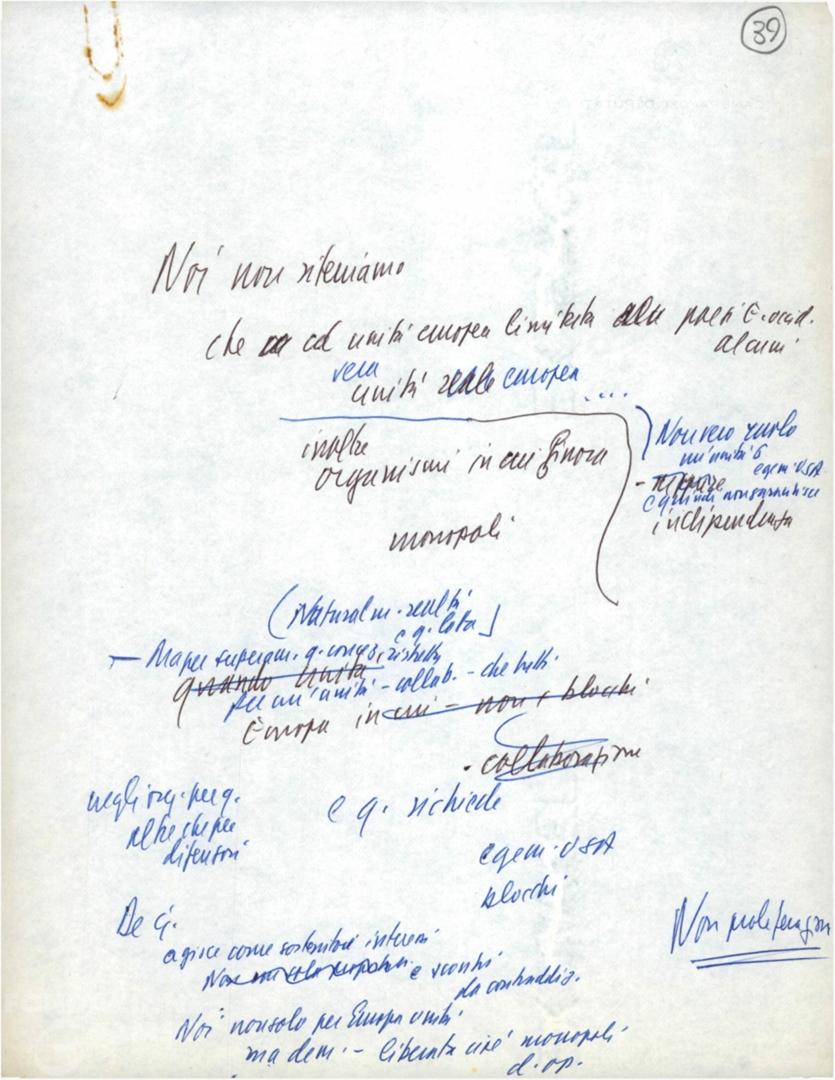 39
Noi non riteniamo
che cd unità europea limitata paesi E. occid.
alcuni
vera
unità reale europea ....
inoltre
organismi in cui finora
monopoli
Non vero ruolo
un'unità
egem. USA
- neppure
e quindi non garantisce
indipendenza
(Natural m. realtà
e q. lotta)
- Ma per superam. q. conces. ristretta
quando Unità
per un'unità - collab. - che tutti
Europa in cui - non blocchi
. collaborazione
negli org. per q.
oltre che per
difensori
e q. richiede
egem. USA
blocchi
De G.
agisce come sostenitore interessi
Non
e scontri
da contraddiz.
Non proliferazion
Noi non solo per Europa unita
ma dem. - liberata cioè monopoli
d. op.